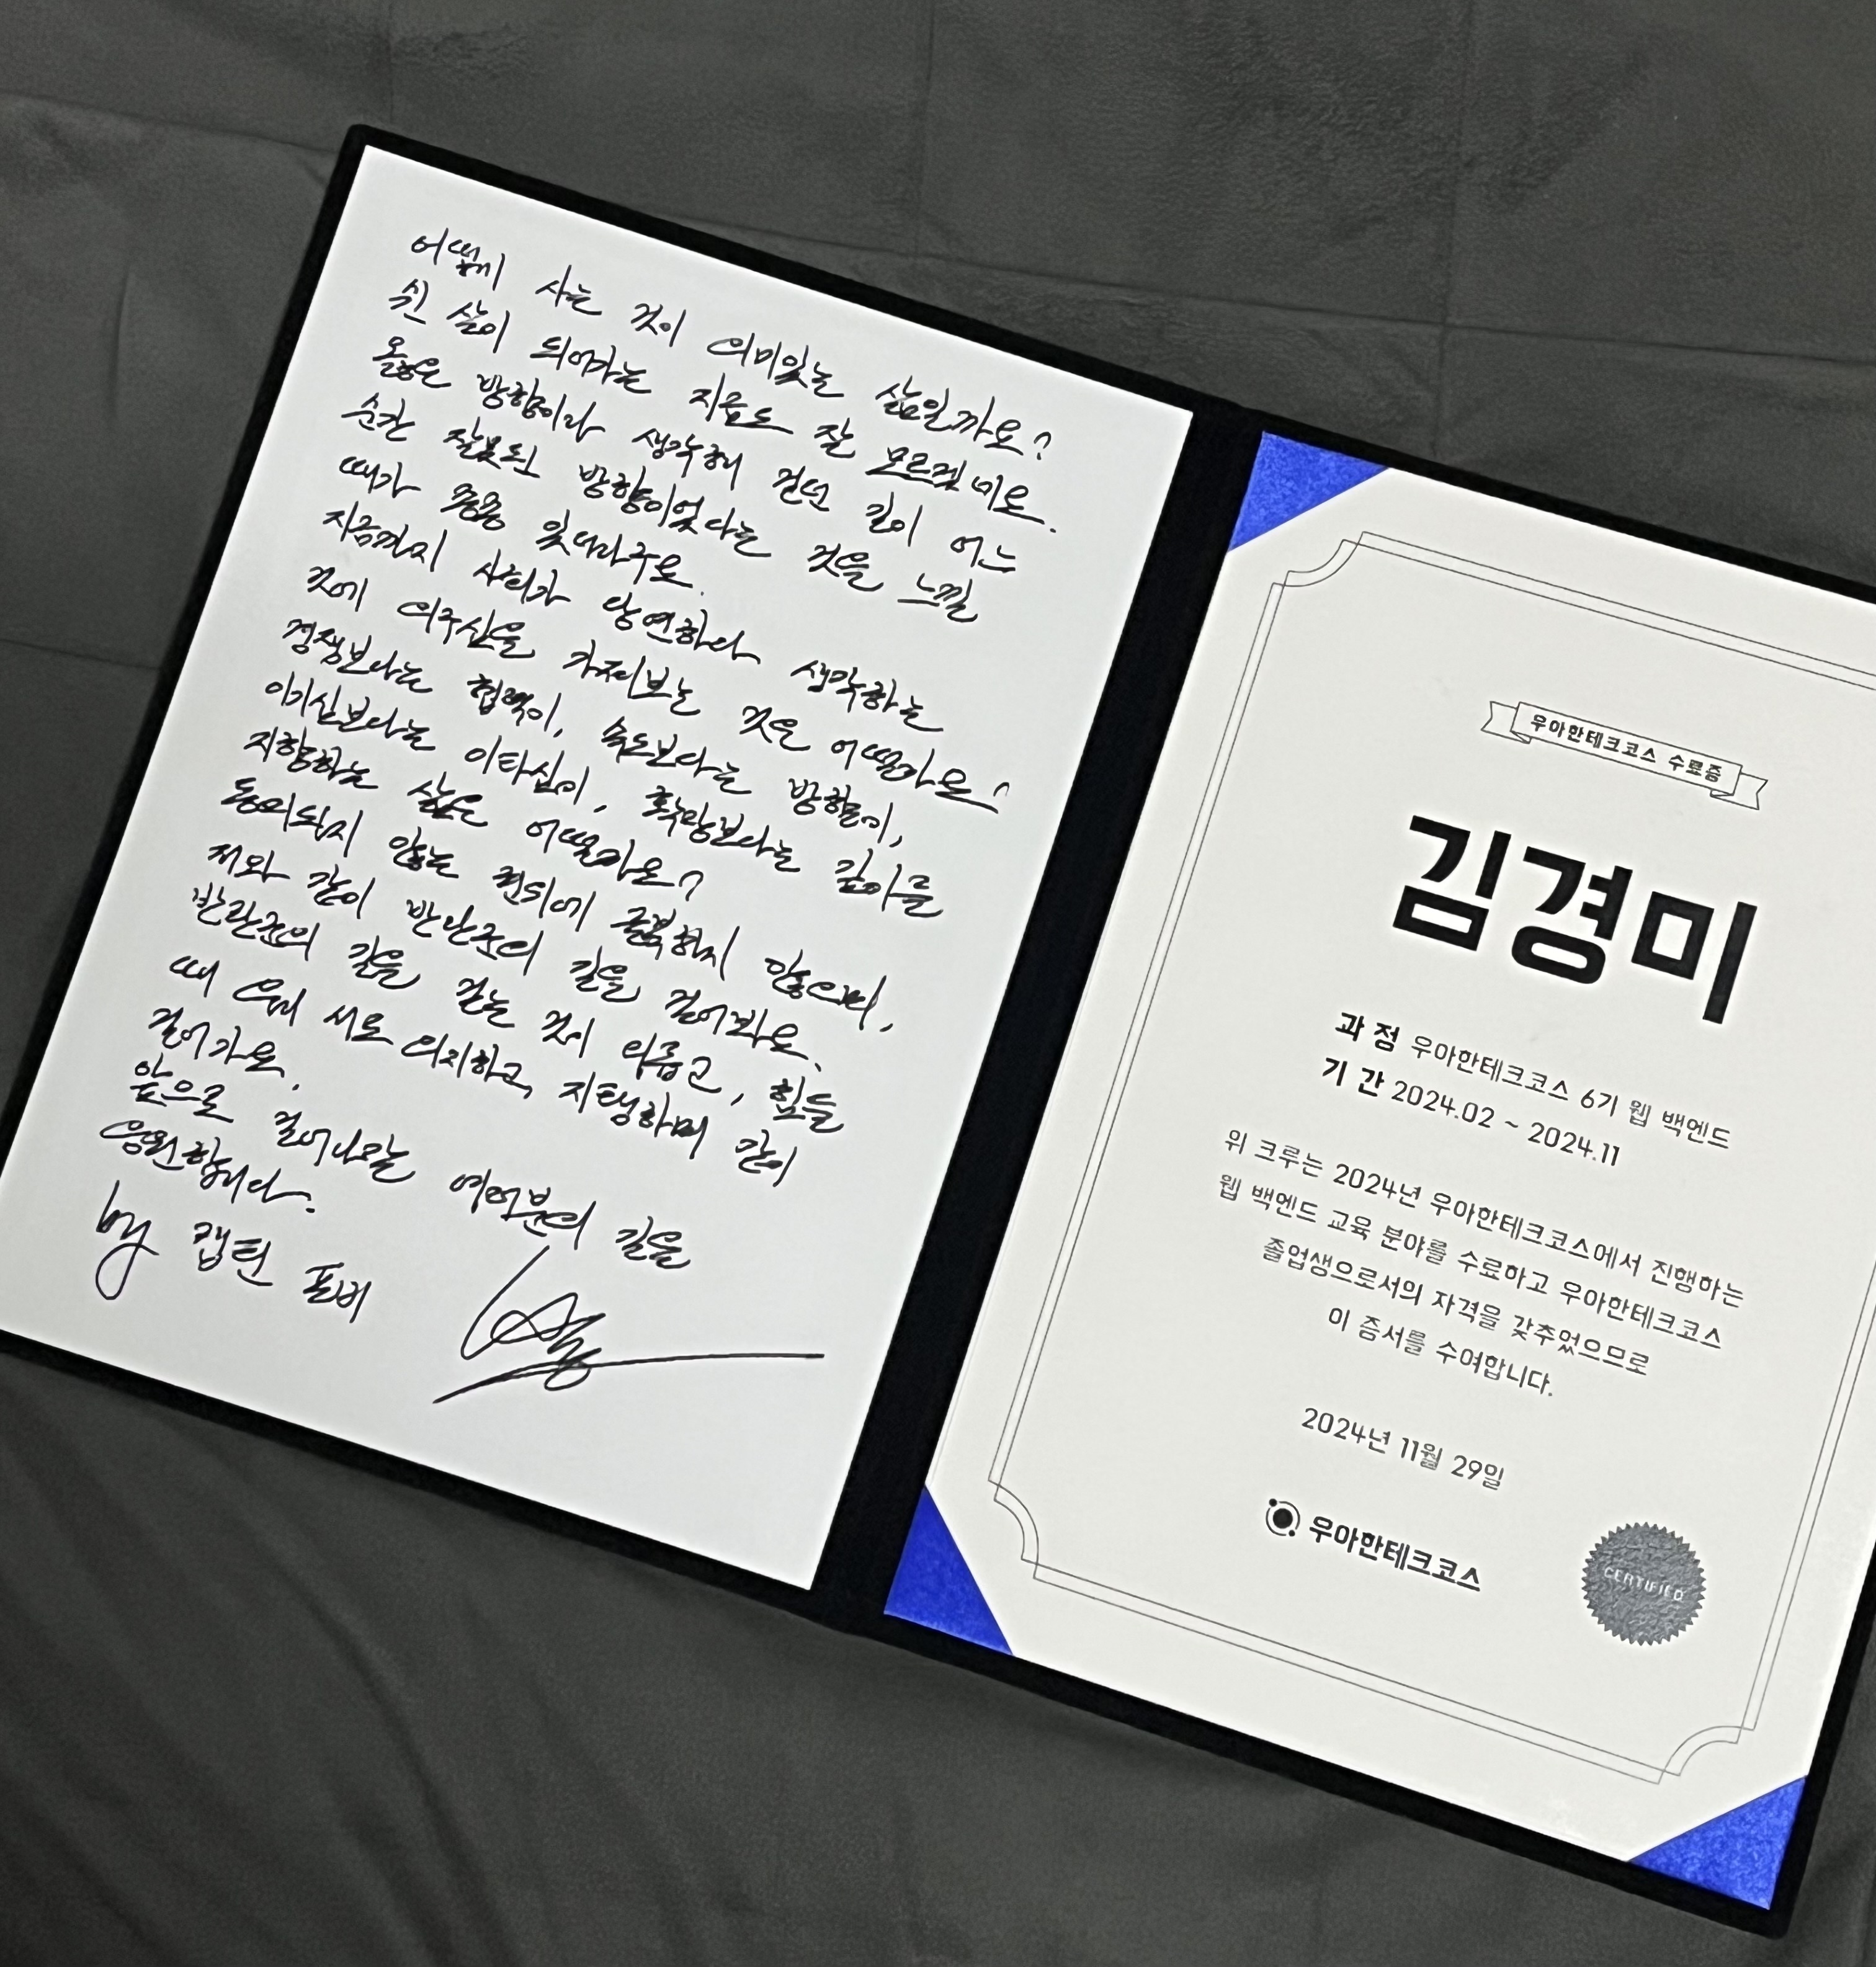 어떻게 사는 것이 의미있는 삶일까요?
쉰 살이 되어가는 지금도 잘 모르겠네요.
올바른 방향이라 생각해 걷던 길이 어느
순간 잘못된 방향이었다는 것을 느낄
때가 종종 있더라구요.
지금까지 사회가 당연하다 생각하는
것에 의구심을 가져보는 것은 어떨까요?
경쟁보다는 협력이, 속도보다는 방향이,
이기심보다는 이타심이, 확장보다는 깊이를
지향하는 삶은 어떨까요?
동의되지 않는 권위에 굴복하지 않으며,
저와 같이 반란군의 길을 걸어봐요.
반란군의 길을 걷는 것이 외롭고, 힘들
때 우리 서로 의지하고, 지탱하며 같이
걸어가요.
앞으로 걸어나갈 여러분의 길을
응원합니다.
by 캡틴 포비
우아한테크코스 수료증
김경미
과 정 우아한테크코스 6기 웹 백엔드
기 간 2024.02 ~ 2024.11
위 크루는 2024년 우아한테크코스에서 진행하는
웹 백엔드 교육 분야를 수료하고 우아한테크코스
졸업생으로서의 자격을 갖추었으므로
이 증서를 수여합니다.
2024년 11월 29일
우아한테크코스
CERTIFIED